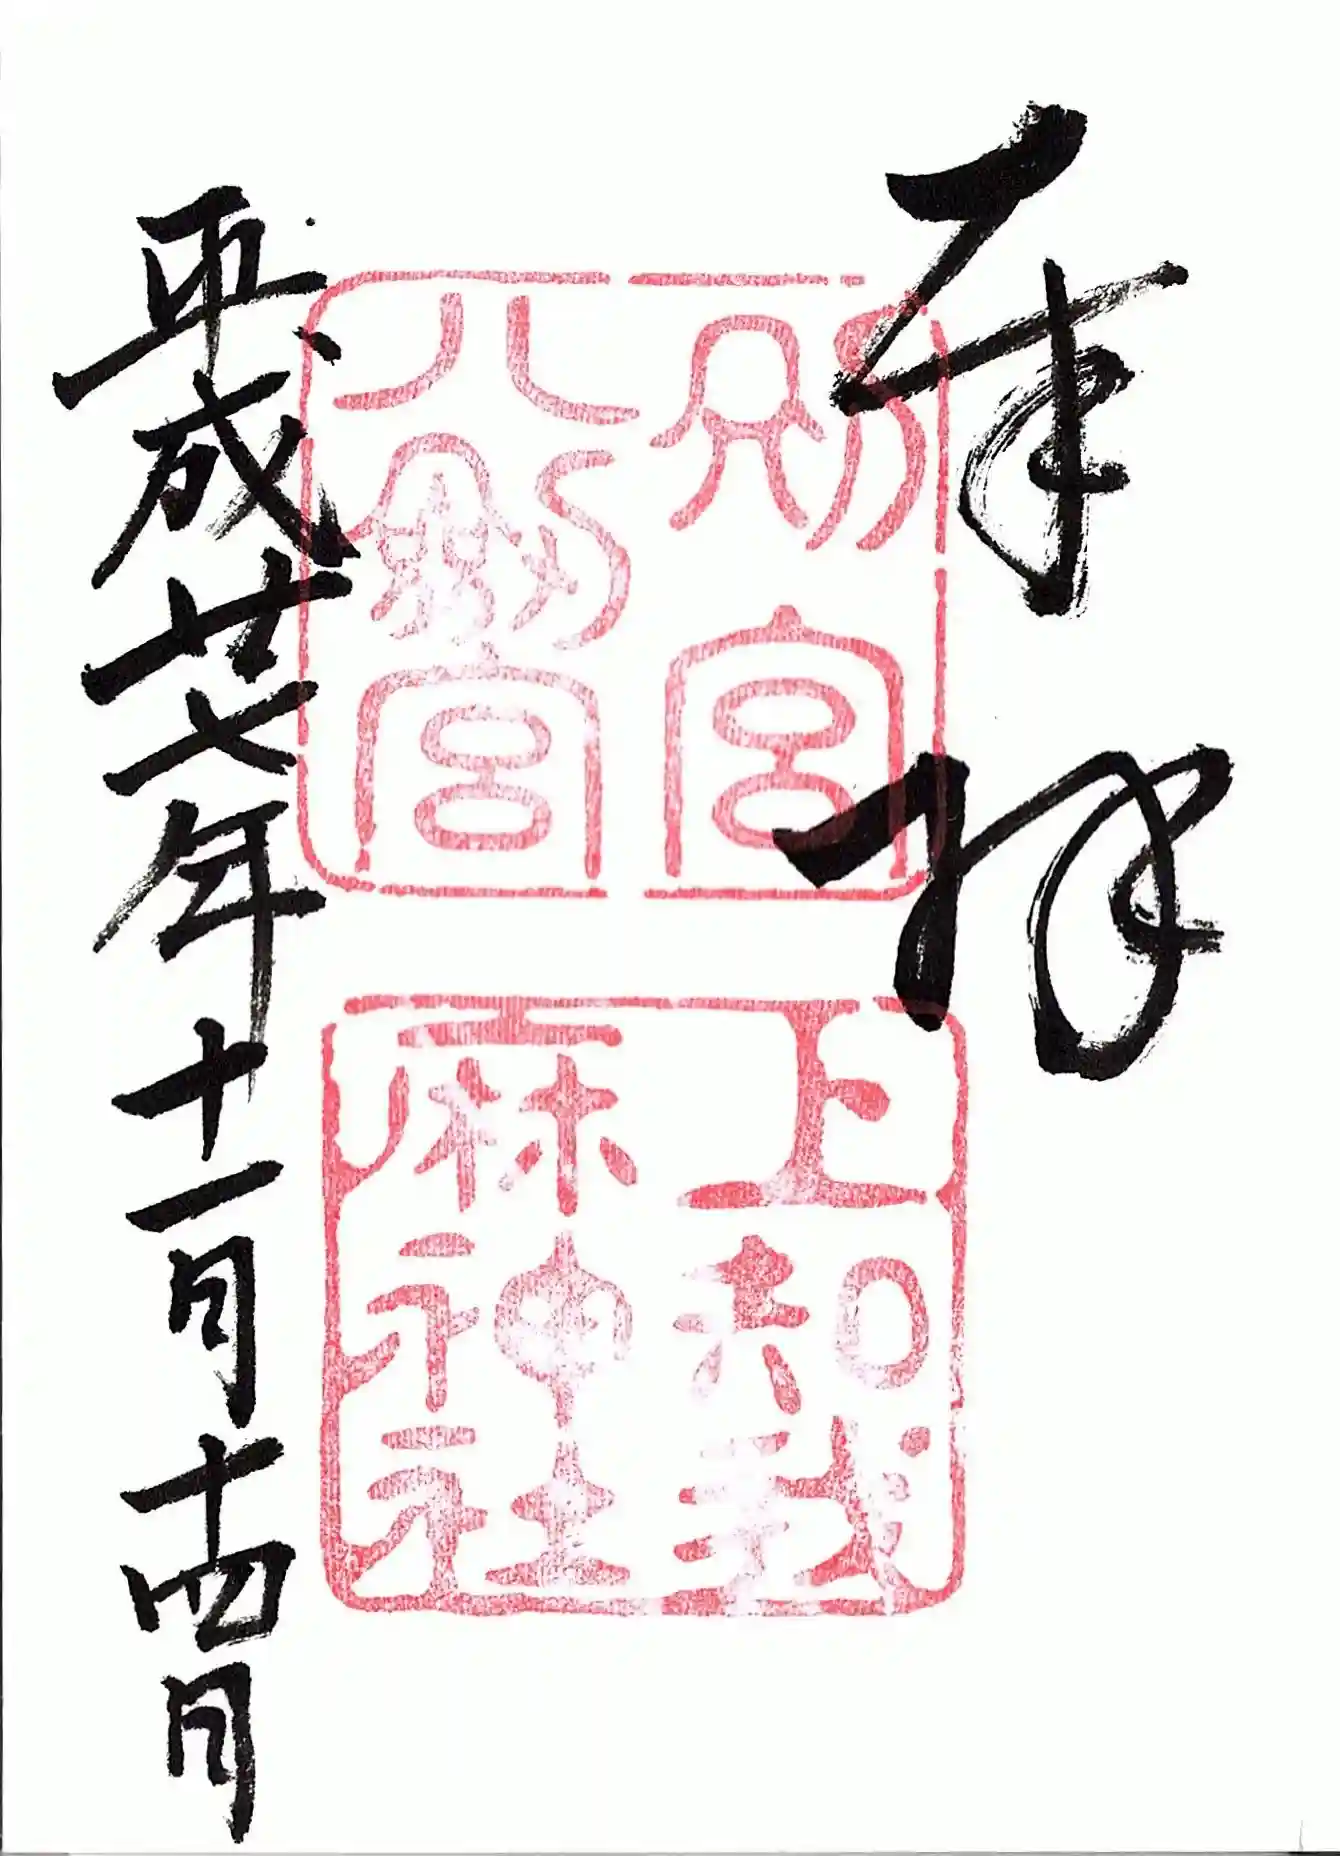 奉拝
別宮
八劔宮
上知我
麻神社
平成廿七年十一月十四日